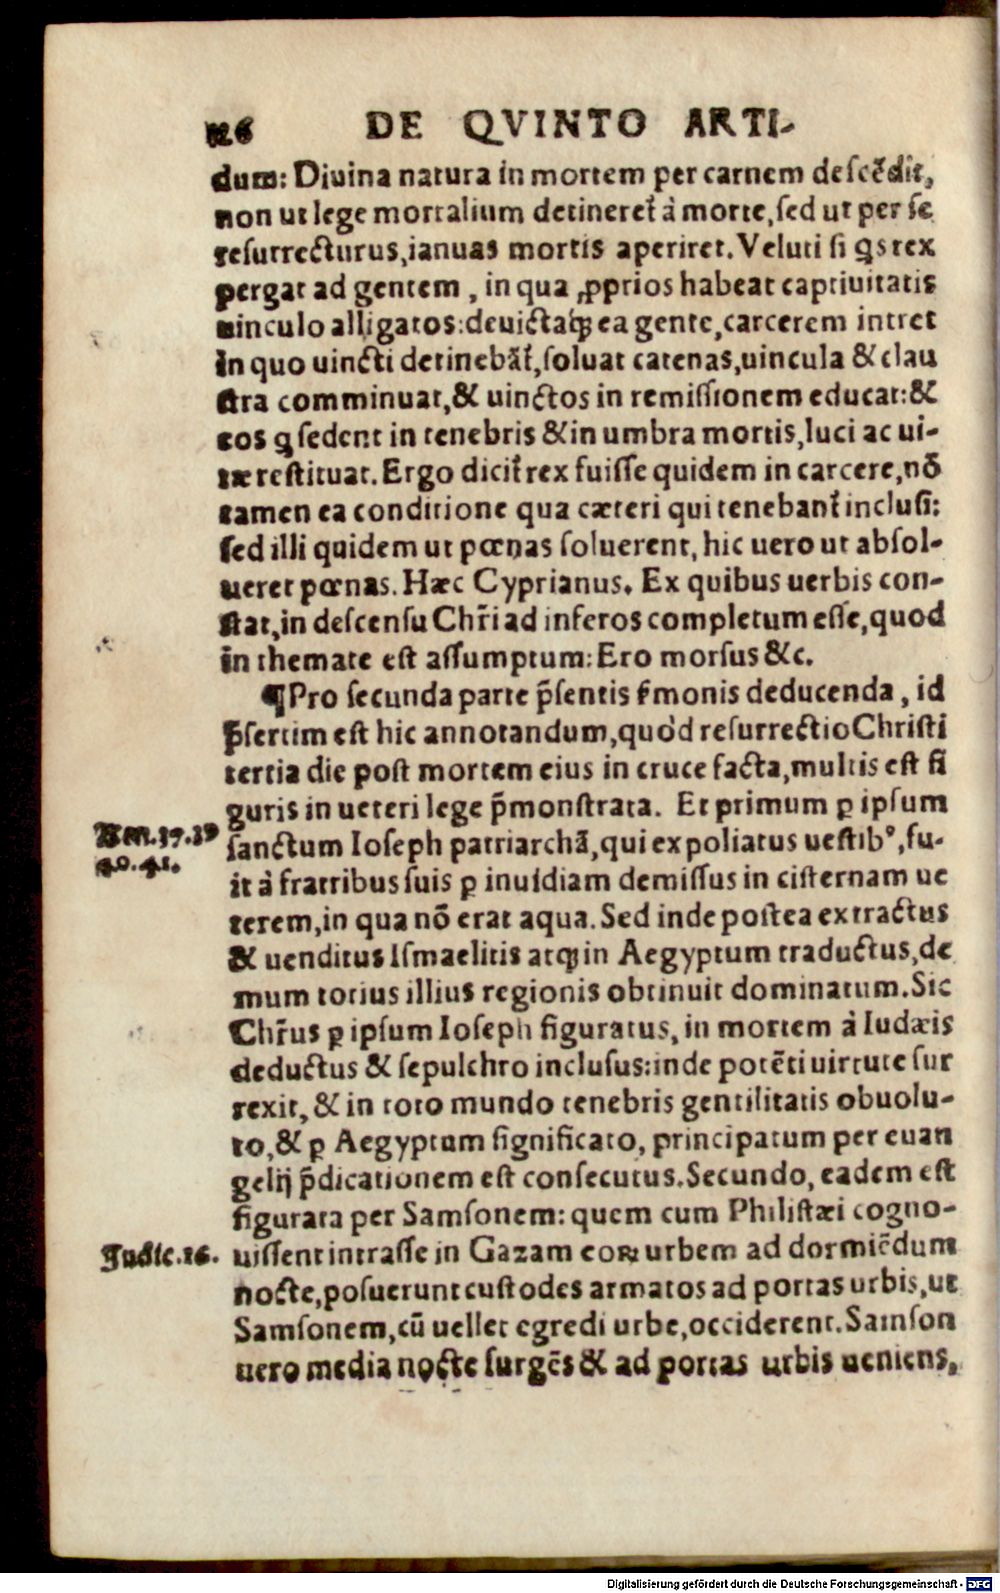 126 DE QVINTO ARTI-
dum: Diuina natura in mortem per carnem descẽdit,
non ut lege mortalium detineret᷑ à morte, sed ut per se
resurrecturus, ianuas mortis aperiret. Veluti si qs rex
pergat ad gentem, in qua ꝓprios habeat captiuitatis
uinculo alligatos: deuictaq́ꝫ ea gente, carcerem intret
in quo uincti detinebãt᷑, soluat catenas, uincula & clau
stra comminuat, & uinctos in remissionem educat: &
eos q sedent in tenebris & in umbra mortis, luci ac ui-
tæ restituat. Ergo dicit᷑ rex fuisse quidem in carcere, nõ
tamen ea conditione qua cæteri qui tenebant᷑ inclusi:
sed illi quidem ut pœnas soluerent, hic uero ut absol-
ueret pœnas. Hæc Cyprianus. Ex quibus uerbis con-
stat, in descensu Chr̃i ad inferos completum esse, quod
in themate est assumptum: Ero morsus &c.
¶Pro secunda parte p̃sentis s̃monis deducenda, id
p̃sertim est hic annotandum, quòd resurrectio Christi
tertia die post mortem eius in cruce facta, multis est fi
guris in ueteri lege p̃monstrata. Et primum ꝑ ipsum
Gen. 37. 39
sanctum Ioseph patriarchã, qui expoliatus uestibꝰ, fu-
40. 41.
it à fratribus suis ꝑ inuidiam demissus in cisternam ue
terem, in qua nõ erat aqua. Sed inde postea extractus
& uenditus Ismaelitis atqꝫ in Aegyptum traductus, de
mum totius illius regionis obtinuit dominatum. Sic
Chr̃us ꝑ ipsum Ioseph figuratus, in mortem à Iudæis
deductus & sepulchro inclusus: inde potẽti uirtute sur
rexit, & in toto mundo tenebris gentilitatis obuolu-
to, & ꝑ Aegyptum significato, principatum per euan
gelij p̃dicationem est consecutus. Secundo, eadem est
figurata per Samsonem: quem cum Philistæi cogno-
Judic. 16.
uissent intrasse in Gazam eoꝝ urbem ad dormiẽdum
nocte, posuerunt custodes armatos ad portas urbis, ut
Samsonem, cũ uellet egredi urbe, occiderent. Samson
uero media nocte surgẽs & ad portas urbis ueniens,
Digitalisierung gefördert durch die Deutsche Forschungsgemeinschaft - DFG